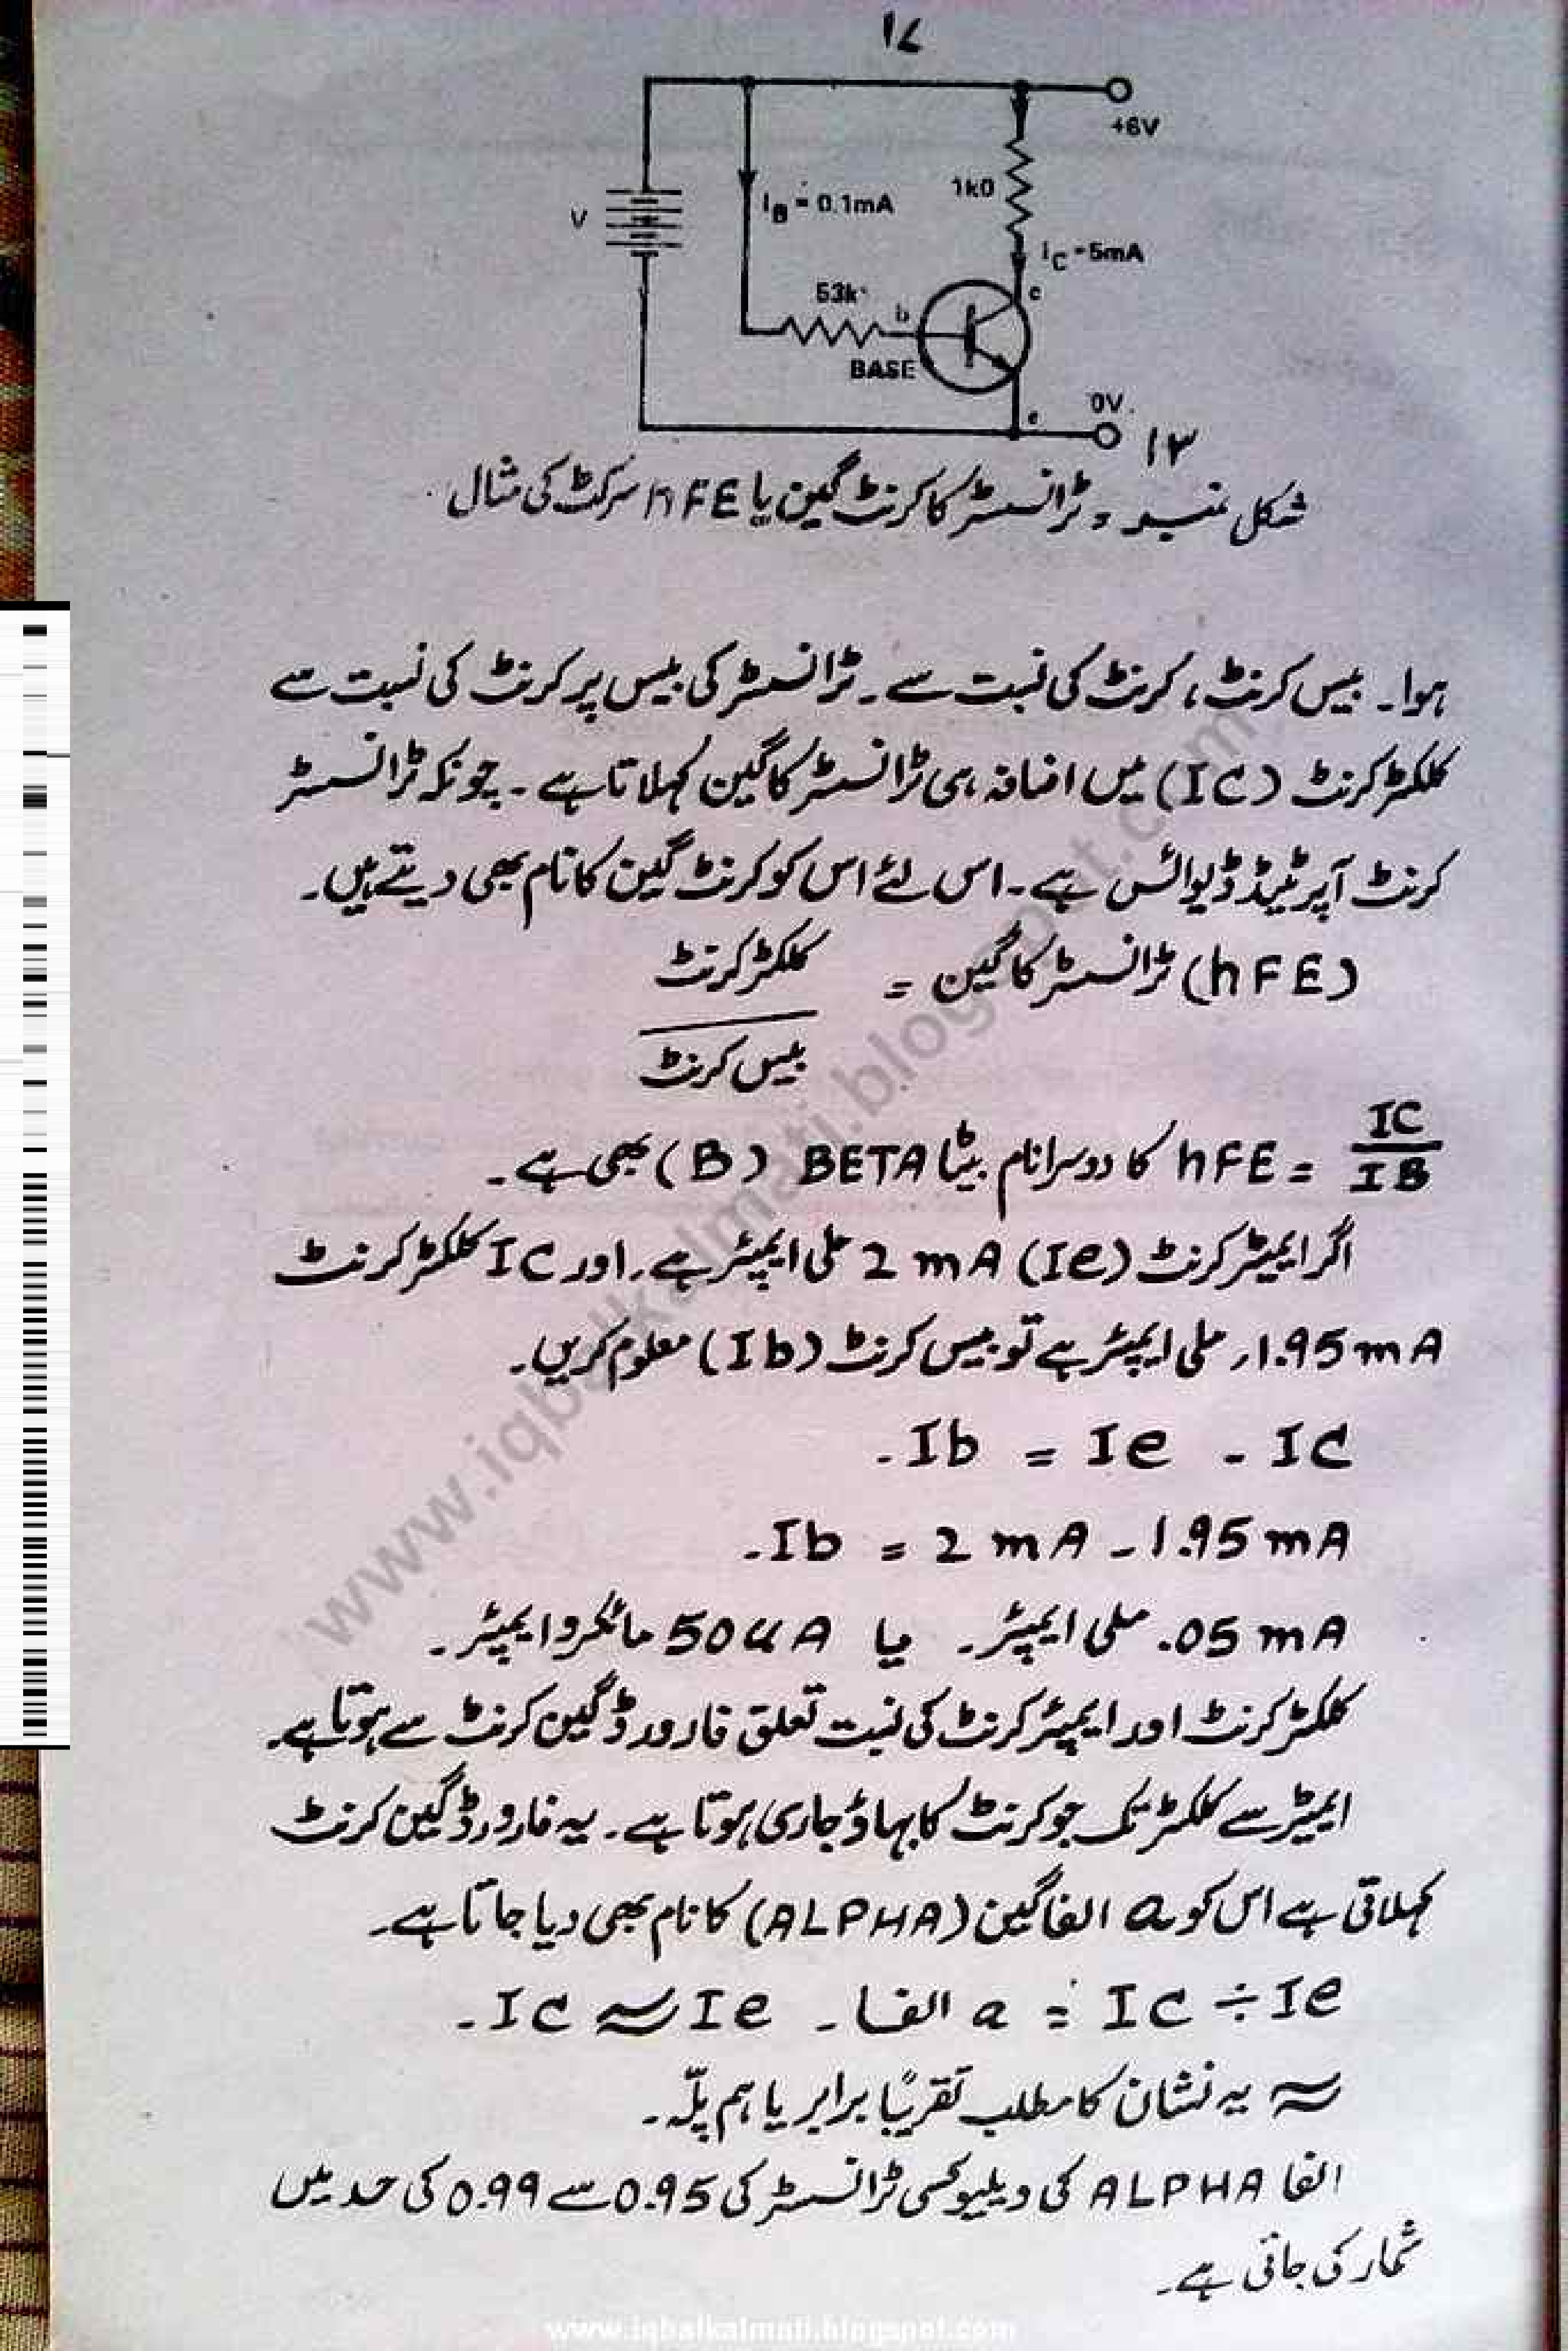 ۱۷
+6V
1k0
V
IB = 0.1mA
IC = 5mA
c
53k
b
BASE
0V.
e
۱۳
شکل نمبر = ٹرانسسٹر کا کرنٹ گین یا hFE سرکٹ کی مثال
ہوا۔ بیس کرنٹ، کرنٹ کی نسبت سے۔ ٹرانسسٹر کی بیس پر کرنٹ کی نسبت سے
کلکٹر کرنٹ (IC) میں اضافہ ہی ٹرانسسٹر کا گین کہلاتا ہے۔ چونکہ ٹرانسسٹر
کرنٹ آپریٹیڈ ڈیوائس ہے۔ اس لئے اس کو کرنٹ گین کا نام بھی دیتے ہیں۔
(hFE) ٹرانسسٹر کا گین = کلکٹر کرنٹ
بیس کرنٹ
IC
IB
= hFE کا دوسرا نام بیٹا BETA (B) بھی ہے۔
اگر ایمیٹر کرنٹ (Ie) 2 mA ملی ایمپئر ہے۔ اور IC کلکٹر کرنٹ
1.95 mA ملی ایمپئر ہے تو بیس کرنٹ (Ib) معلوم کریں۔
Ib = Ie - IC
Ib = 2 mA - 1.95 mA
.05 mA ملی ایمپئر۔ یا 50 uA مائکرو ایمپئر۔
کلکٹر کرنٹ اور ایمیٹر کرنٹ کی نسبت تعلق فارورڈ گین کرنٹ سے ہوتا ہے۔
ایمیٹر سے کلکٹر تک جو کرنٹ کا بہاؤ جاری ہوتا ہے۔ یہ فارورڈ گین کرنٹ
کہلاتی ہے اس کو a الفا گین (ALPHA) کا نام بھی دیا جاتا ہے۔
Ic ≈ Ie ۔ الفا a = Ic ÷ Ie
≈ یہ نشان کا مطلب تقریبًا برابر یا ہم پلّہ۔
الفا ALPHA کی ویلیو کسی ٹرانسسٹر کی 0.95 سے 0.99 کی حد میں
شمار کی جاتی ہے۔
www.iqbalkalmati.blogspot.com
www.iqbalkalmati.blogspot.com